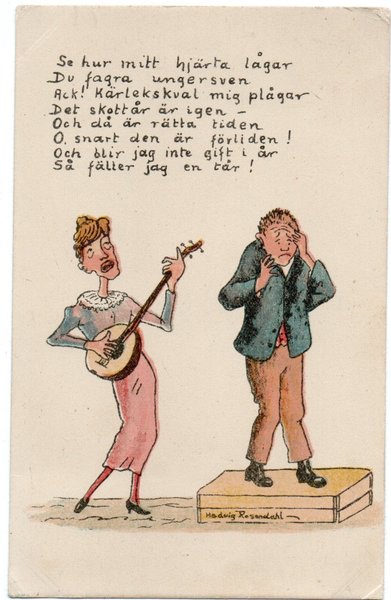 Se hur mitt hjärta lågar
Du fagra ungersven
Ack! Kärlekskval mig plågar
Det skottår är igen –
Och då är rätta tiden
O, snart den är förliden!
Och blir jag inte gift i år
Så fäller jag en tår!
Hedvig Rosendahl